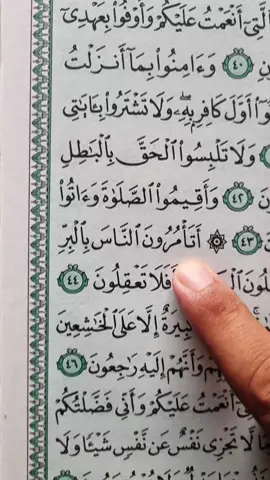 ٱلَّتِىٓ أَنْعَمْتُ عَلَيْكُمْ وَأَوْفُوا۟ بِعَهْدِىٓ
٤٠ وَءَامِنُوا۟ بِمَآ أَنزَلْتُ
أَوَّلَ كَافِرٍۭ بِهِۦ ۖ وَلَا تَشْتَرُوا۟ بِـَٔايَٰتِى
وَلَا تَلْبِسُوا۟ ٱلْحَقَّ بِٱلْبَٰطِلِ
٤٢ وَأَقِيمُوا۟ ٱلصَّلَوٰةَ وَءَاتُوا۟
٤٣ ۞ أَتَأْمُرُونَ ٱلنَّاسَ بِٱلْبِرِّ
أَفَلَا تَعْقِلُونَ ٤٤
إِلَّا عَلَى ٱلْخَٰشِعِينَ
وَأَنَّهُمْ إِلَيْهِ رَٰجِعُونَ ٤٦
أَنْعَمْتُ عَلَيْكُمْ وَأَنِّى فَضَّلْتُكُمْ
لَّا تَجْزِى نَفْسٌ عَن نَّفْسٍ شَيْـًٔا وَلَا